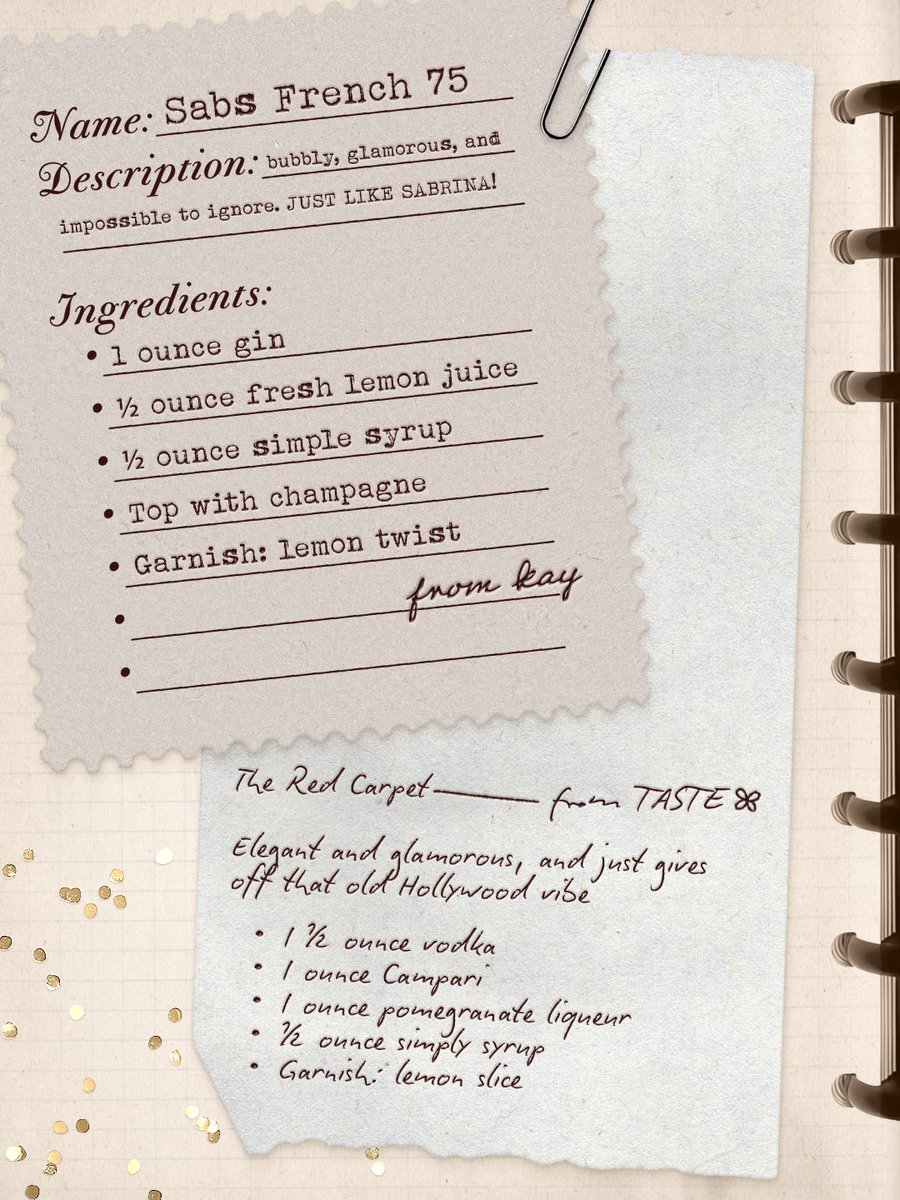 Name: Sabs French 75
Description: bubbly, glamorous, and
impossible to ignore. JUST LIKE SABRINA!
Ingredients:
• 1 ounce gin
• ½ ounce fresh lemon juice
• ½ ounce simple syrup
• Top with champagne
• Garnish: lemon twist
• from kay
•
The Red Carpet—from TASTE
Elegant and glamorous, and just gives
off that old Hollywood vibe
• 1 ½ ounce vodka
• 1 ounce Campari
• 1 ounce pomegranate liqueur
• ½ ounce simply syrup
• Garnish: lemon slice